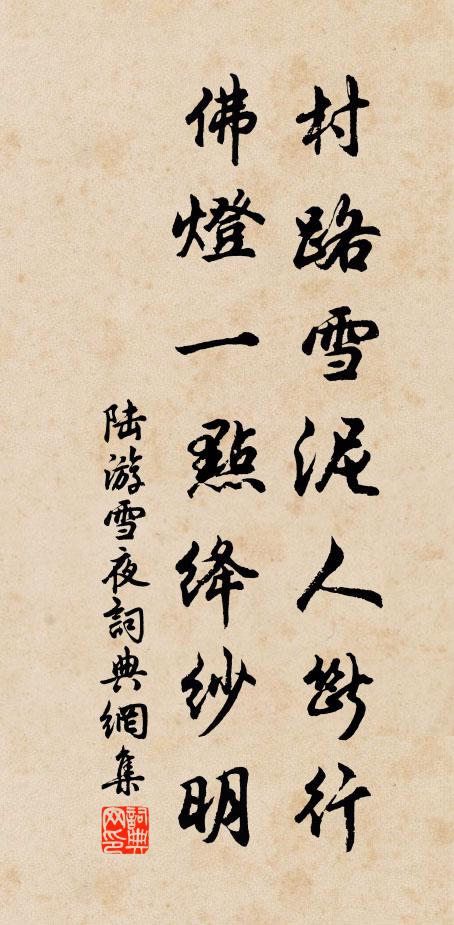 村路雪泥人斷行
佛燈一點絳紗明
陸游雪夜詞典網集
詞典網印